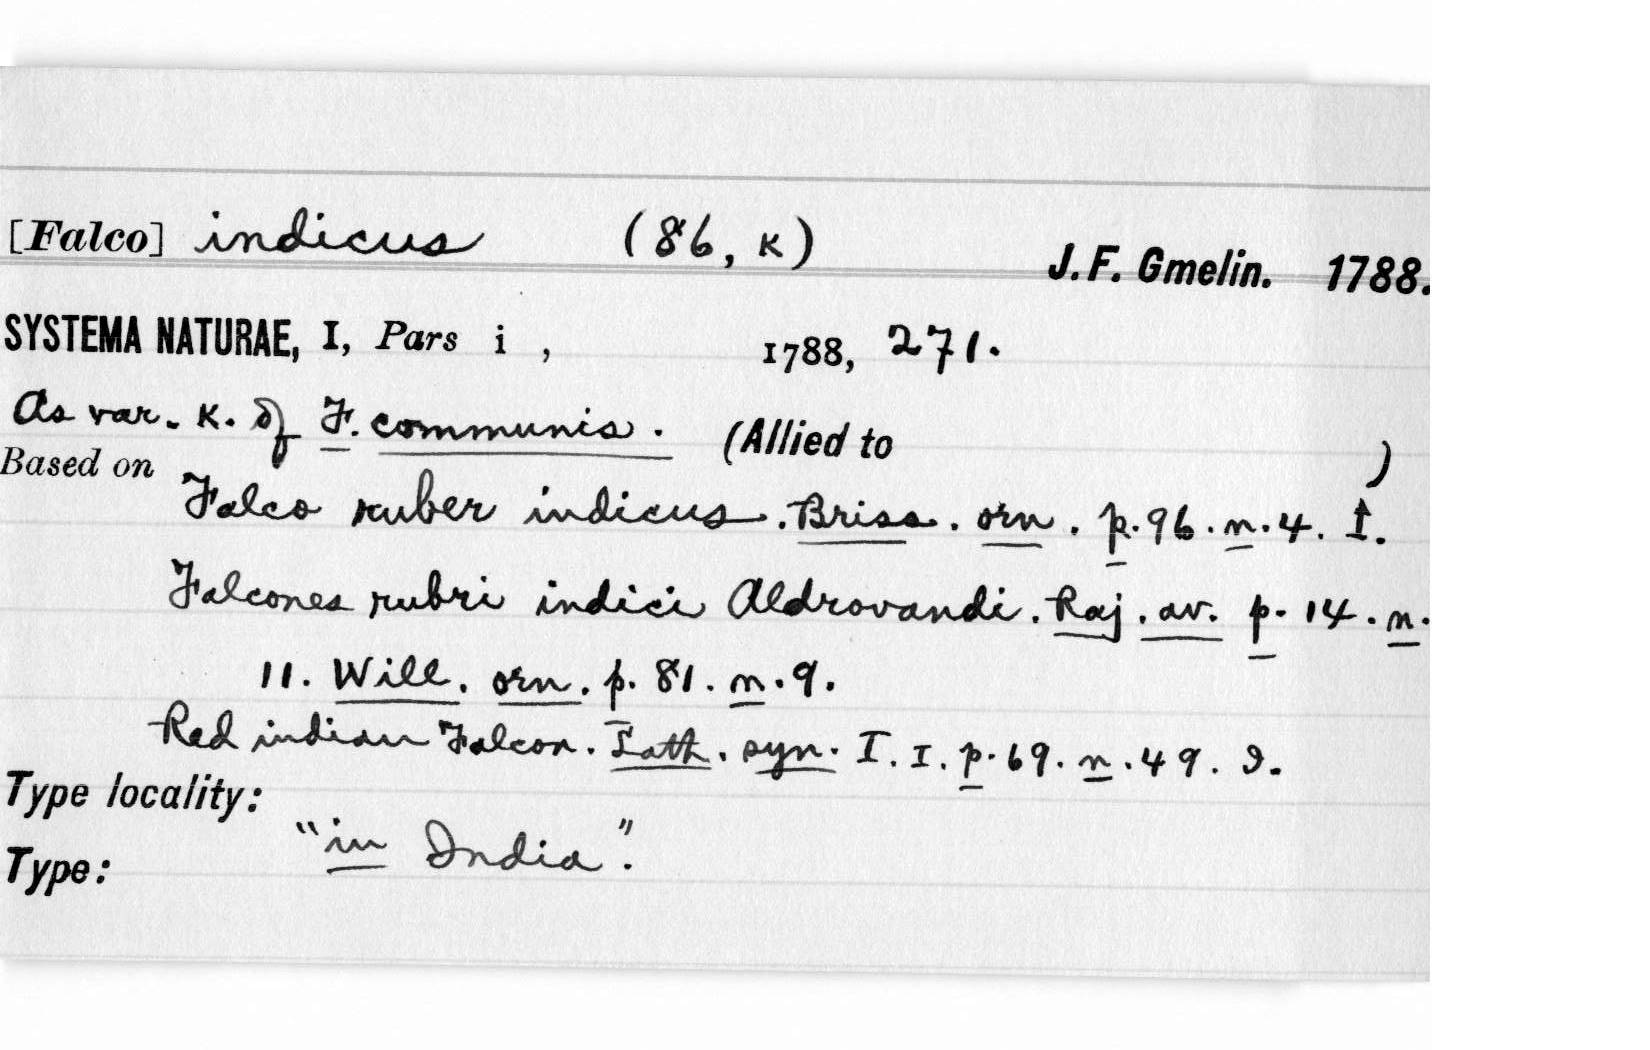 [Falco] indicus (86, κ) J. F. Gmelin. 1788.
SYSTEMA NATURAE, I, Pars i , 1788, 271.
As var. κ. of F. communis. (Allied to )
Based on
Falco ruber indicus. Briss. orn. p. 96. n. 4. I.
Falcones rubri indici Aldrovandi. Raj. av. p. 14. n.
11. Will. orn. p. 81. n. 9.
Red indian Falcon. Lath. syn. I. I. p. 69. n. 49. D.
Type locality:
"in India".
Type: